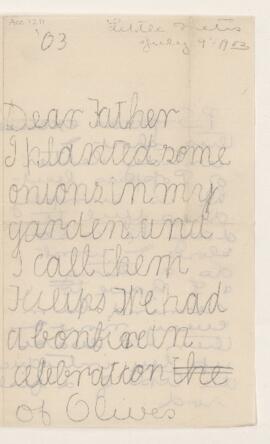 Acc. 1211
Little Metis
'03
July 9' 1903
Dear Father
I planted some
onions in my
garden and
I call them
Tulips We had
a bonfire in
celebration the
of Olives